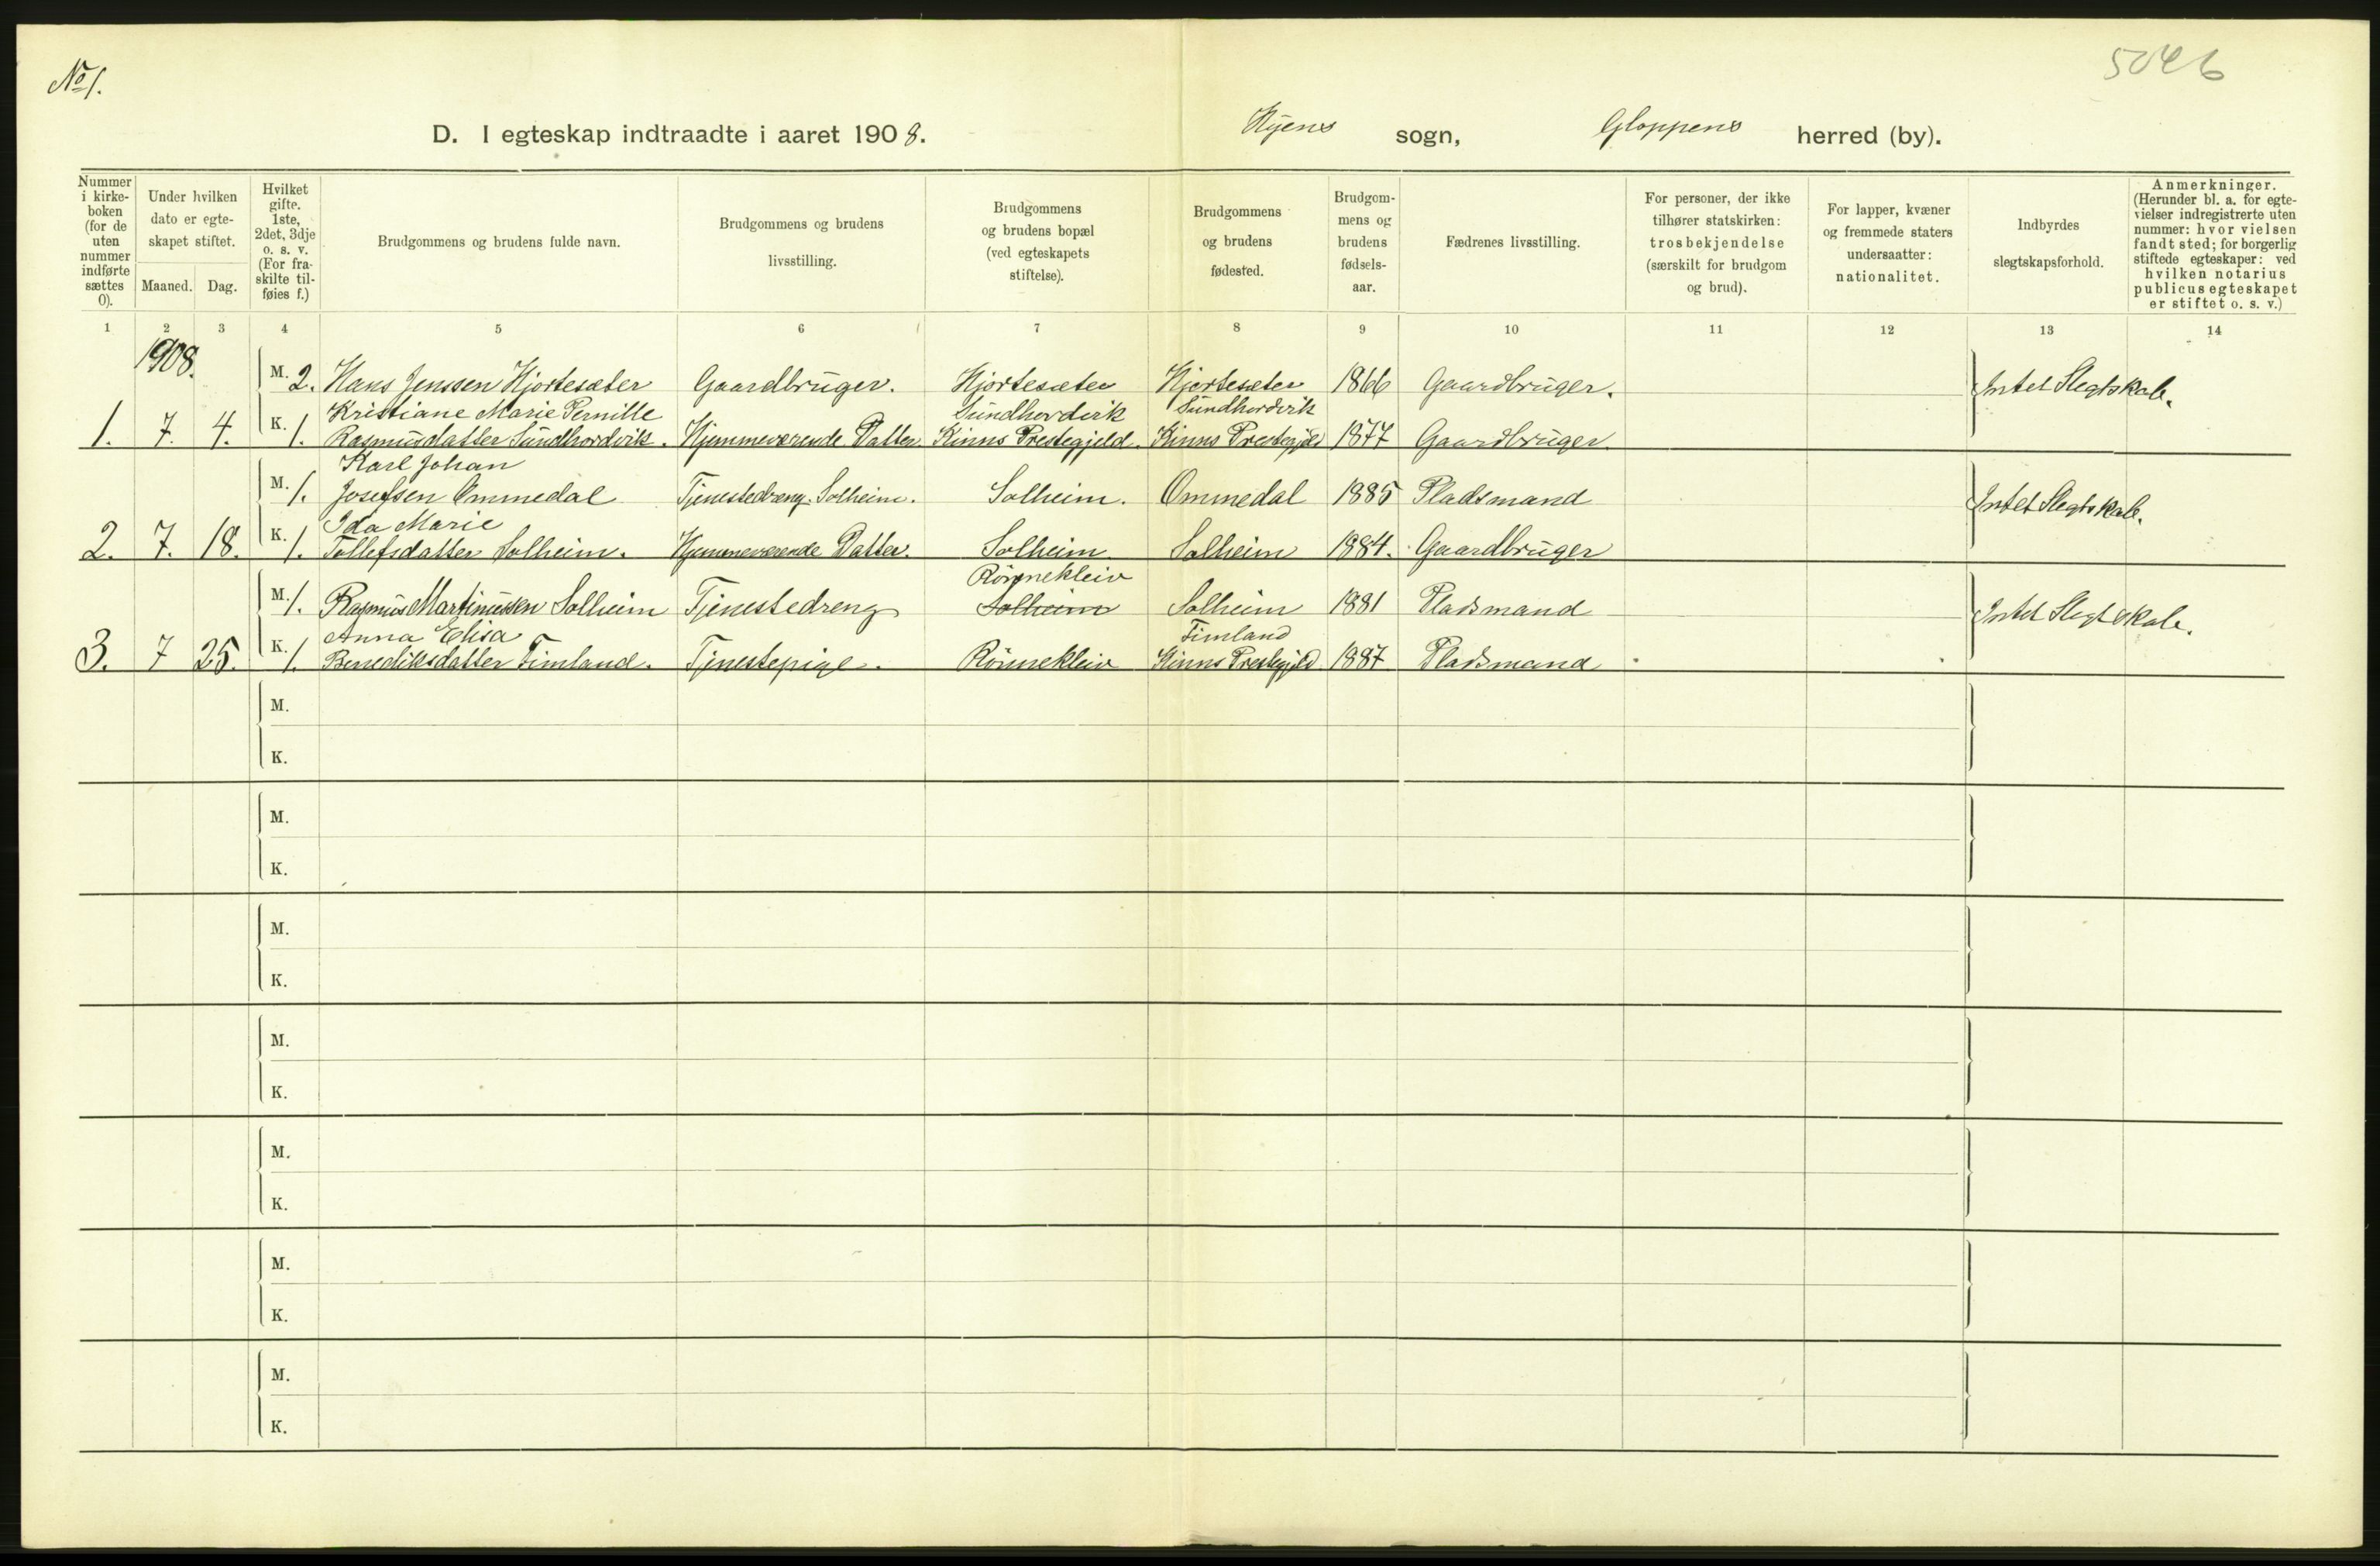 No 1.
5046
D. I egteskap indtraadte i aaret 1908. Hyens sogn, Gloppens herred (by).
Nummer i kirke- boken (for de uten nummer indførte sættes 0).
Under hvilken dato er egte- skapet stiftet.
Maaned. Dag.
Hvilket gifte. 1ste, 2det, 3dje o. s. v. (For fra- skilte til- føies f.)
Brudgommens og brudens fulde navn.
Brudgommens og brudens livsstilling.
Brudgommens og brudens bopæl (ved egteskapets stiftelse).
Brudgommens og brudens fødested.
Brudgom- mens og brudens fødsels- aar.
Fædrenes livsstilling.
For personer, der ikke tilhører statskirken: trosbekjendelse (særskilt for brudgom og brud).
For lapper, kvæner og fremmede staters undersaatter: nationalitet.
Indbyrdes slegtskapsforhold.
Anmerkninger. (Herunder bl. a. for egte- vielser indregistrerte uten nummer: hvor vielsen fandt sted; for borgerlig stiftede egteskaper: ved hvilken notarius publicus egteskapet er stiftet o. s. v.)
1 2 3 4 5 6 7 8 9 10 11 12 13 14
1908.
M. 2. Hans Jenssen Hjortesæter Gaardbruger. Hjortesæter Hjortesæter 1866 Gaardbruger. Intet Slegtskab.
Kristiane Marie Pernille Sundhordvik Sundhordvik
1. 7. 4. K. 1. Rasmusdatter Sundhordvik. Hjemmeværende Datter Kinns Prestegjeld. Kinns Prestegjeld 1877 Gaardbruger.
Karl Johan
M. 1. Josefsen Ommedal Tjenestedreng. Solheim. Solheim. Ommedal 1885 Pladsmand Intet Slegtskab.
Ida Marie
2. 7. 18. K. 1. Tollefsdatter Solheim. Hjemmeværende Datter. Solheim. Solheim 1884. Gaardbruger
Rönnekleiv
M. 1. Rasmus Martinussen Solheim Tjenestedreng Solheim Solheim 1881 Pladsmand Intet Slegtskab.
Anna Elisa Timland
3. 7 25. K. 1. Benediksdatter Timland. Tjenestepige. Rönnekleiv Kinns Prestegjeld 1887 Pladsmand
M.
K.
M.
K.
M.
K.
M.
K.
M.
K.
M.
K.
M.
K.